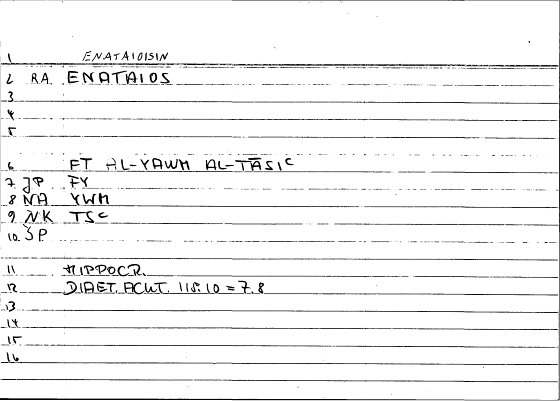 1 ENATAIOISIN
2 RA ENATAIOS
3
4
5
6 FT AL-YAWM AL-TĀSIC
7 JP FY
8 NA YWM
9 NK TSC
10 SP
11 HIPPOCR.
12 DIAET. ACUT. 115.10 = 7.8
13
14
15
16